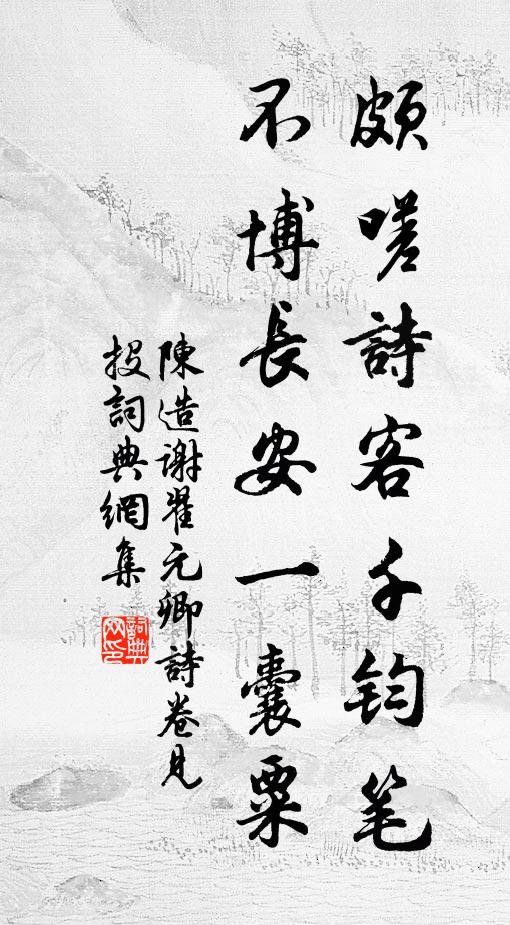 頗嗟詩客千钧笔
不博長安一囊粟
陳造謝翟元卿詩卷見
投詞典網集
詞典网印